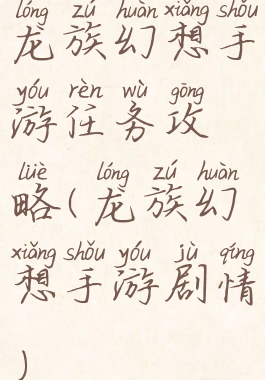 lóng zú huàn xiǎng shǒu
龙族幻想手
yóu rèn wù gōng
游任务攻
lüè lóng zú huàn
略(龙族幻
xiǎng shǒu yóu jù qíng
想手游剧情
)